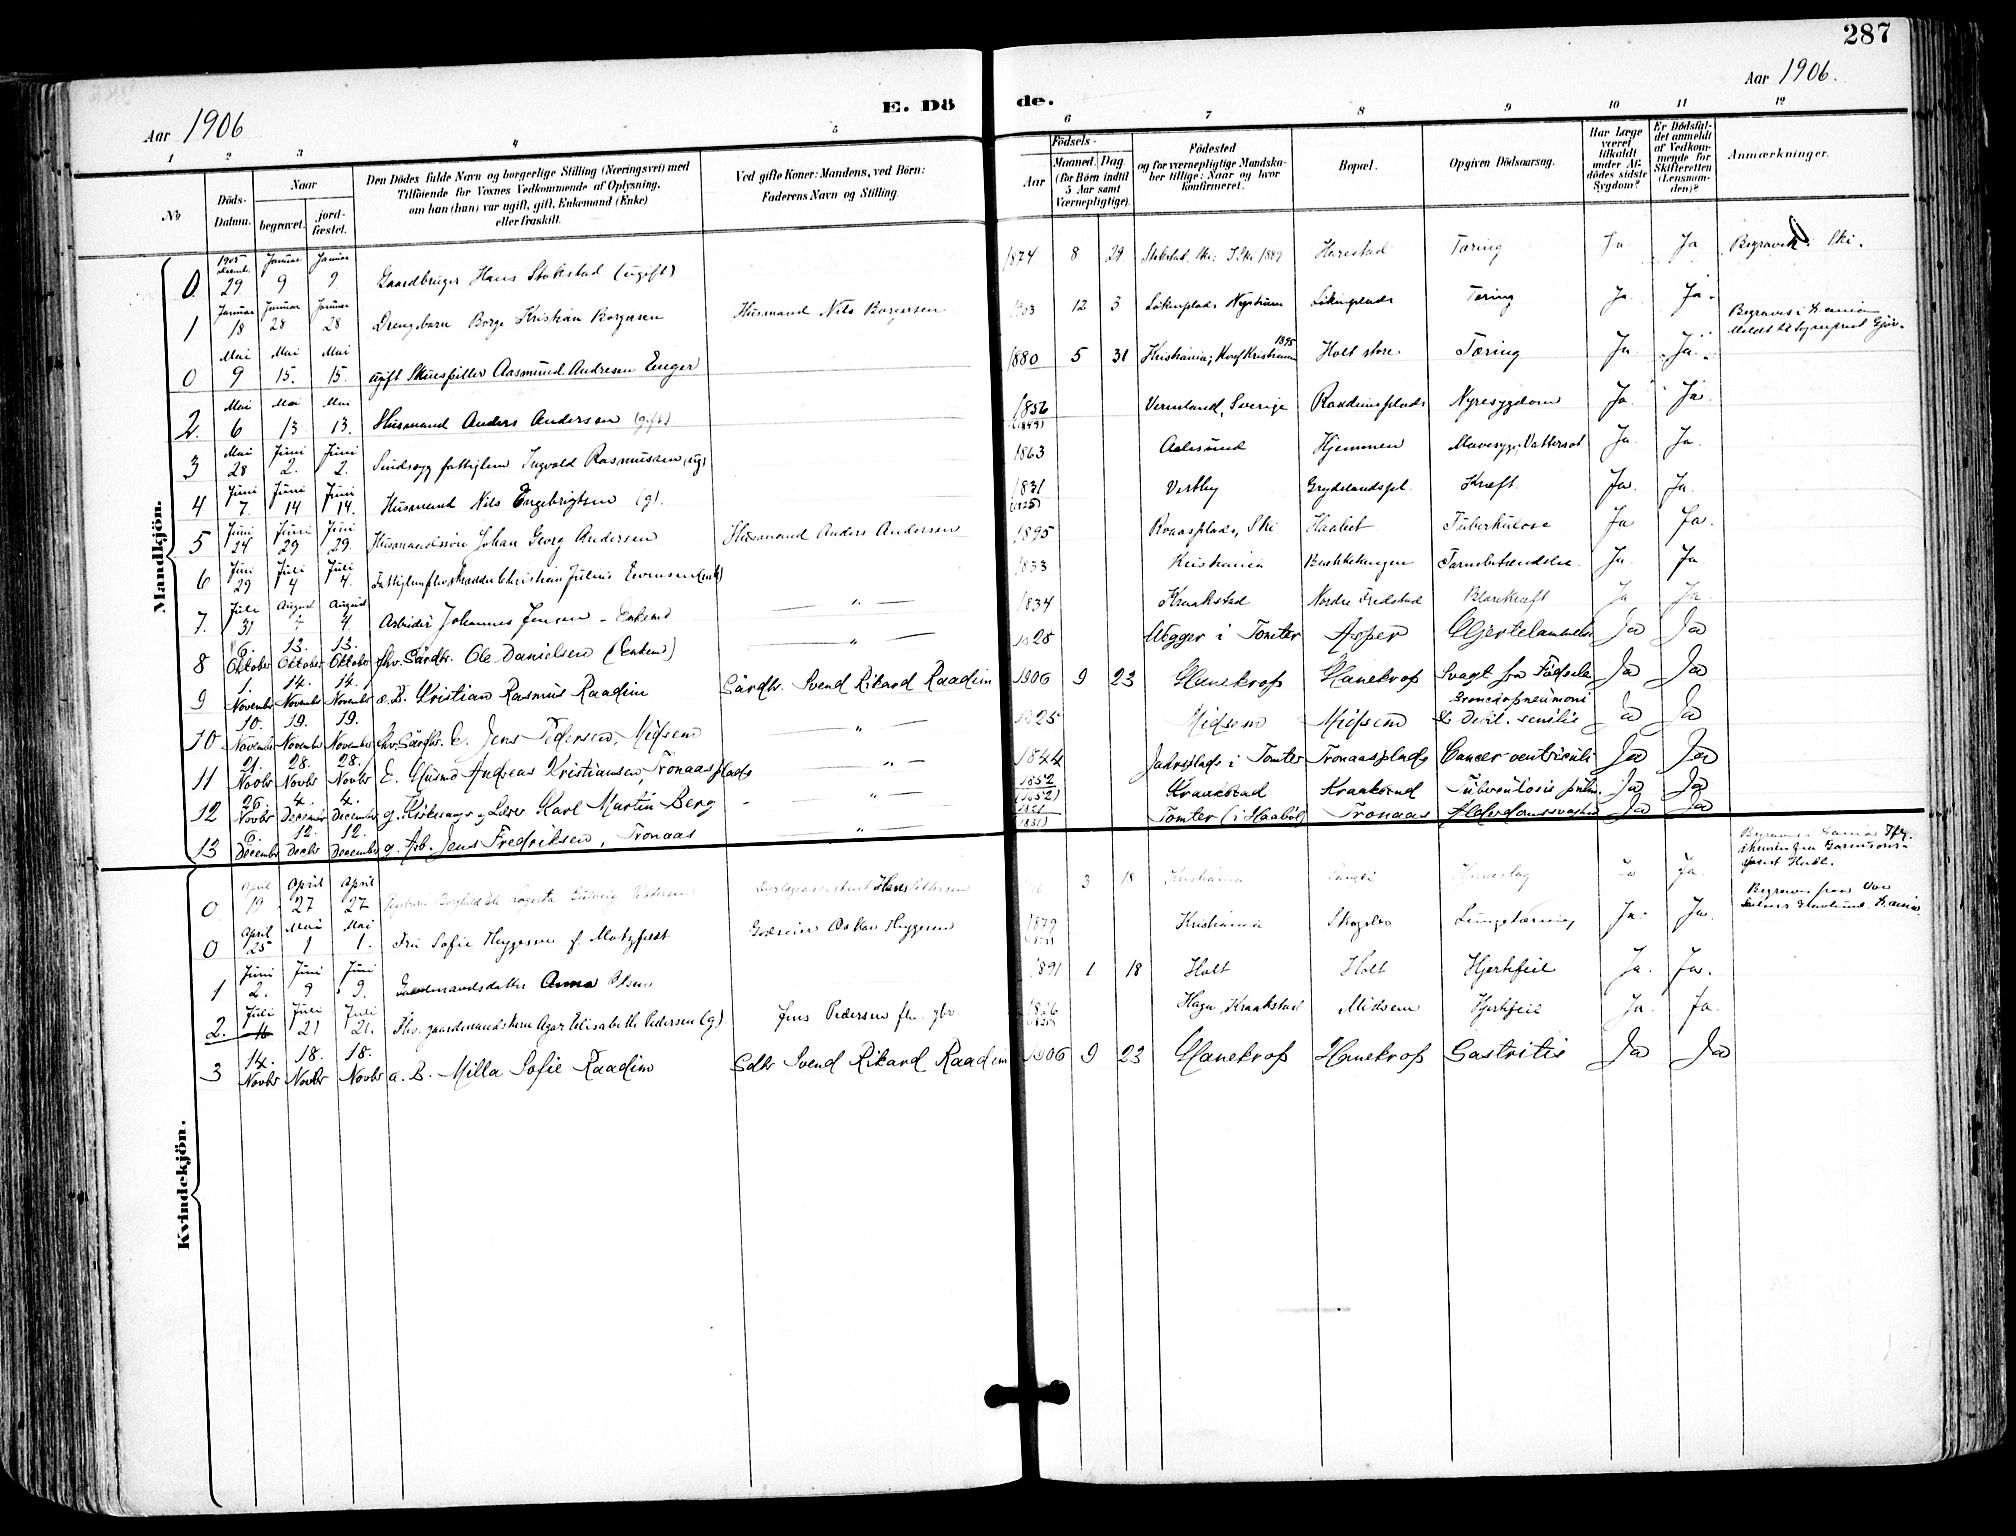 287
Aar 1906
E. Dö de.
Aar 1906.
1 2 3 4 5 6 7 8 9 10 11 12
No
Döds-Datum.
Naar
begravet.
jord-fæstet.
Den Dödes fulde Navn og borgerlige Stilling (Næringsvei) med
Tilföiende for Voxnes Vedkommende af Oplysning,
om han (hun) var ugift, gift, Enkemand (Enke)
eller fraskilt.
Ved gifte Koner: Mandens, ved Börn:
Faderens Navn og Stilling.
Födsels-
Aar
Maaned. Dag.
(for Börn indtil
5 Aar samt
Værnepligtige).
Födested
og for værnepligtige Mandska-
ber tillige: Naar og hvor
konfirmeret.
Bopæl.
Opgiven Dödsaarsag.
Har Læge
været
tilkaldt
under Af-
dödes sidste
Sygdom?
Er Dödsfal-
det anmeldt
af Vedkom-
mende for
Skifteretten
(Lensman-
den)?
Anmærkninger.
Mandkjön.
0. 1905 29 Januar 9 Januar 9. Gaardbruger Hans Stokstad (ugift) 1874 8 29 Harestad Tæring Ja Ja Begravet i Ski.
1 Januar 18 Januar 28 Januar 28 Drengebarn Borge Kristian Borgersen Husmand Nils Borgersen 1903 12 3 Tæring Ja Ja.
0 Mai 9 Mai 15. Mai 15. ugift Skuespiller Aasmund Andresen Enger 1880 5 31 Kristiania; 1895 Holt store Tæring Ja Ja.
2. Mai 6 Mai 13 Mai 13. Husmand Anders Andersen (gift) 1856 (1849) Vermland, Sverige Raadimsplads Nyresygdom Ja. Ja.
3 Mai 28 Juni 2. Juni 2. Sindssyg fattiglem Ingvald Rasmussen, ug. 1863 Aalesund Hjemmen Vattersot Ja. Ja.
4 Juni 7. Juni 14 Juni 14. Husmand Nils Engebrigtsen (g). 1831 (1825) Vestby Grydelandspl. Kræft Ja. Ja.
5 Juni 24 Juni 29 Juni 29. Husmandssön Johan Georg Andersen Husmand Anders Andersen 1895 Roaasplads, Ski Haabet Tuberkulose Ja Ja.
6 Juni 29 Juli 4 Juli 4. Christian Julius Evensen (enk) 1833 Kristiania Tarmbetændelse Ja. Ja
7. Juli 31 August 4 August 4. Arbeider Johannes Jensen - Enkemd — " — 1834 Kraakstad Nordre Fredstad Blærekræft Ja Ja.
8 6. Oktober 13. Oktober 13. Oktober fhv. Gårdbr. Ole Danielsen (Enkem) — " — 1828 Wegger i Tomter Asper Hjertelammelse Ja Ja
9 1. November 14. November 14. November a. B. Kristian Rasmus Raadim Gårdbr. Svend Rikard Raadim 1906 9 23 Hanekros Hanekros Svagt fra Födsele Ja Ja
10 10. November 19. November 19. November fhv. Gårdbr. E. Jens Pedersen, Midsem — " — 1825 Midsem Midsem Broncopneumoni & Debil. senilis Ja Ja
11 21. Novbr 28. Novbr 28. Novbr E. Husmd Andreas Kristiansen, Tronaasplads — " — 1844 Jahrsplads i Tomter Tronaasplads Cancer ventriculi Ja Ja
12 26. Novbr 4. December 4. December g. Kirkesanger og Lærer Karl Martin Berg — " — 1852 (1852) Kraakstad Kraakstad Tuberculosis pulm. Ja Ja
13 6. December 12. Decbr 12. December g. Arb. Jens Fredriksen, Tronaas — " — 1831 (1831) Tomter (i Haaböl) Tronaas Alderdomssvaghed Ja Ja
Kvindekjön.
0 April 19 April 27 April 27 3 18 Kristiania Ja.
0 April 25 Mai 1 Mai 1. Fru Sofie Heygesen f. Motzfeldt Oskar Heygesen 1879 Kristiania Lungetæring Ja. Ja.
1 Juni 2. Juni 9 Juni 9. Gaardmandsdatter Anna Olsen 1891 1 18 Holt Holt Hjertfeil Ja. Ja.
2. Juli Juli 21 Juli 21. Fhv. gaardmandskone Agar Elisabeth Pedersen (g) Jens Pedersen 1826 Haga, Kraakstad Midsem Hjertfeil Ja. Ja.
3 14. Novbr 18. Novbr 18. Novbr a. B. Milla Sofie Raadim Gdbr Svend Rikard Raadim 1906 9 23 Hanekros Hanekros Gastritis Ja Ja